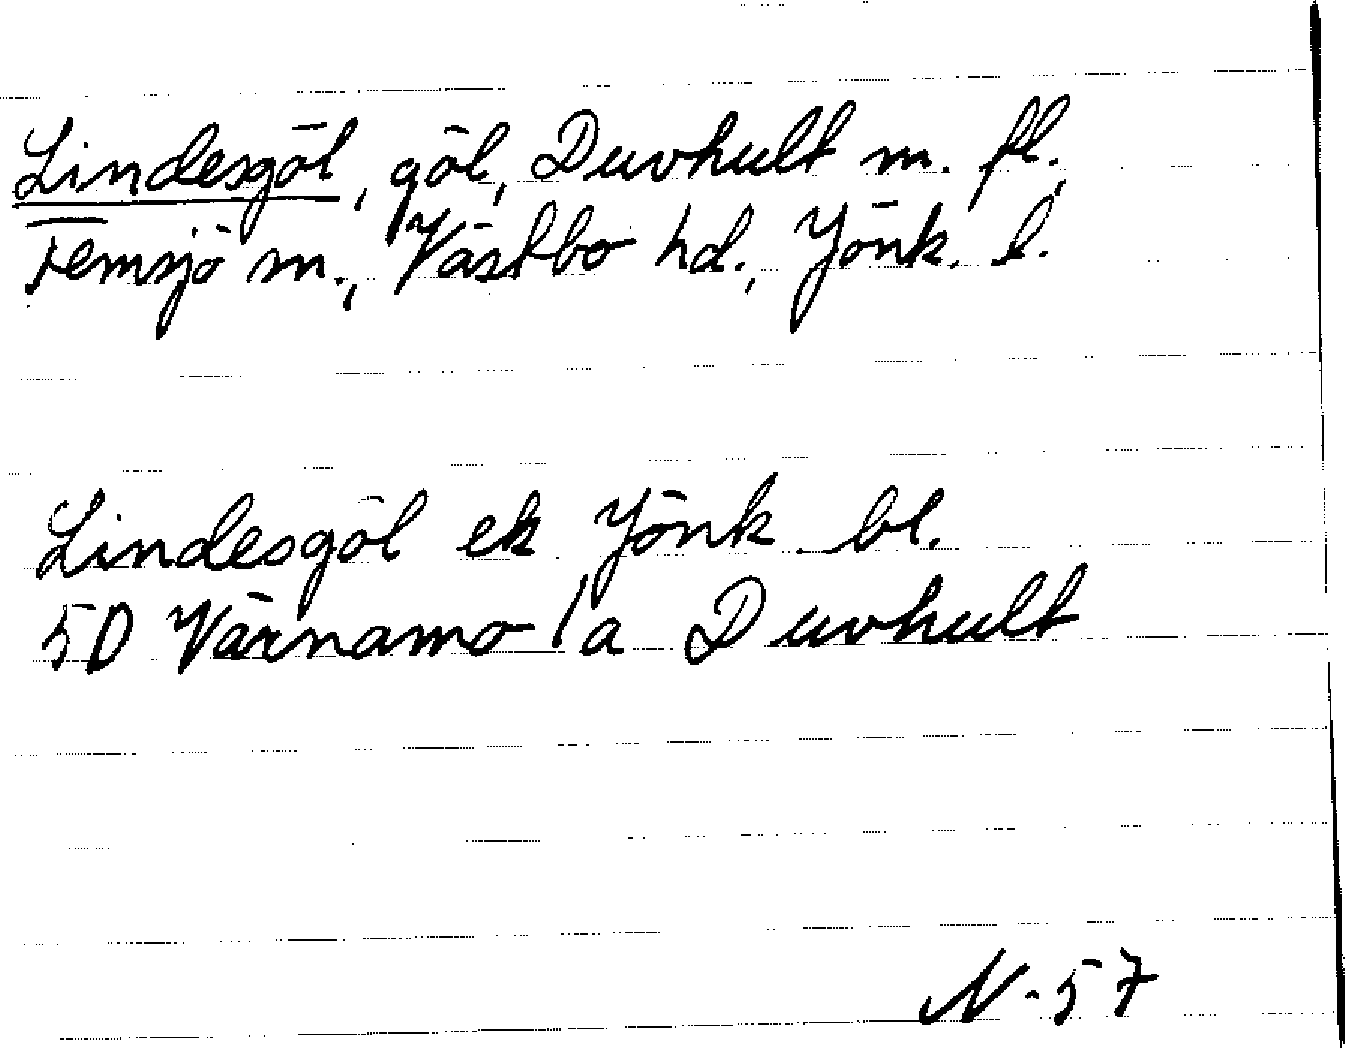 Lindesgöl, göl, Duvhult m. fl.,
Femsjö sn., Västbo hd., Jönk. l.
Lindesgöl ek Jönk bl.
5D Värnamo 1a Duvhult
N-57